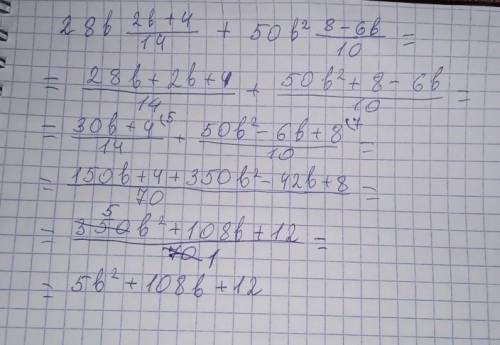 28b (2b+4)/14 + 50b² (8-6b)/10 =
= (28b+2b+4)/14 + (50b²+8-6b)/10 =
= (30b+4)/14 ⁽⁵ + (50b²-6b+8)/10 ⁽⁷ =
= (150b+4+350b²-42b+8)/70 =
= (350b²+108b+12)/70 = 5 1
= 5b²+108b+12